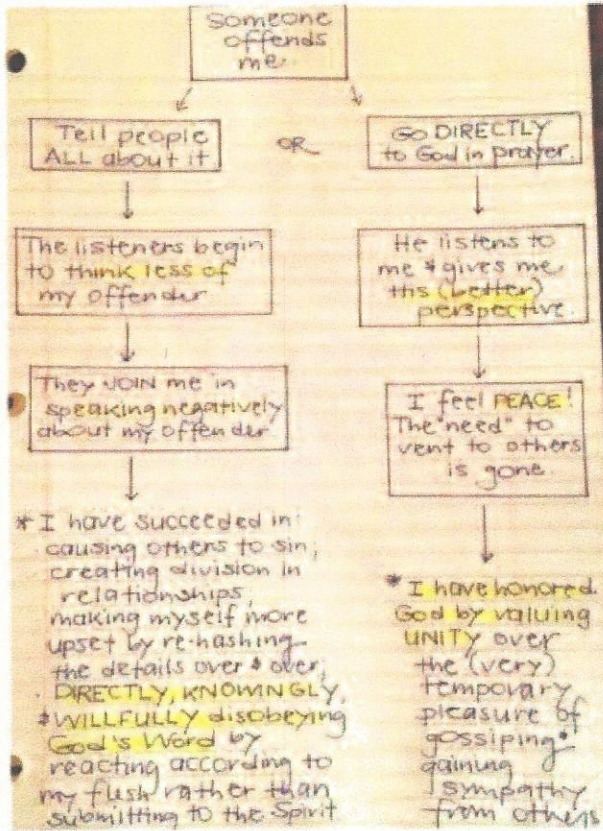 Someone
offends
me.
Tell people
ALL about it
OR
Go DIRECTLY
to God in prayer.
The listeners begin
to think less of
my offender
He listens to
me & gives me
ths (better)
perspective.
They JOIN me in
speaking negatively
about my offender
I feel PEACE!
The "need" to
vent to others
is gone.
* I have succeeded in
causing others to sin,
creating division in
relationships,
making myself more
upset by re-hashing
the details over & over,
DIRECTLY, KNOWINGLY,
* WILLFULLY disobeying
God's Word by
reacting according to
my flesh rather than
submitting to the Spirit
* I have honored
God by valuing
UNITY over
the (very)
temporary
pleasure of
gossiping &
gaining
sympathy
from others